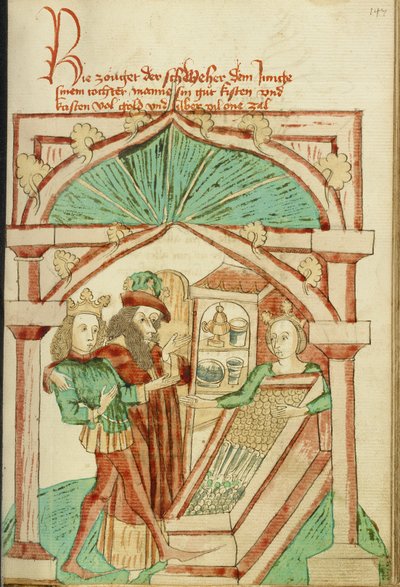 147
Hie zöuget der schweher dem Junge
sinem tochter manne sin gut kisten vnd
kasten vol gold vnd silber vil one zal